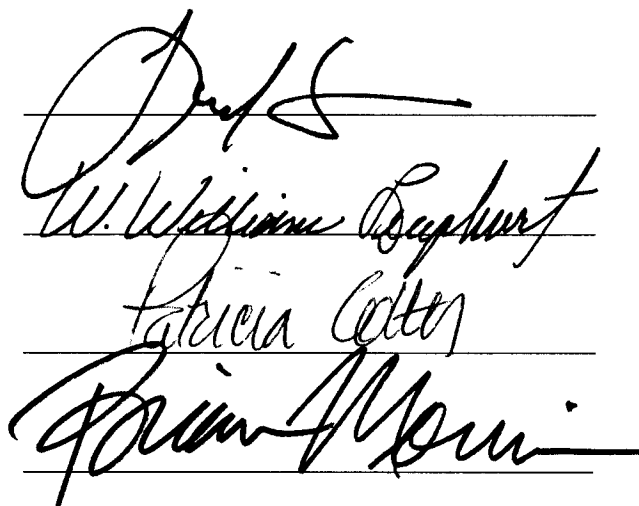 W. William Leaphart
Patricia Cotter
Brian Morris